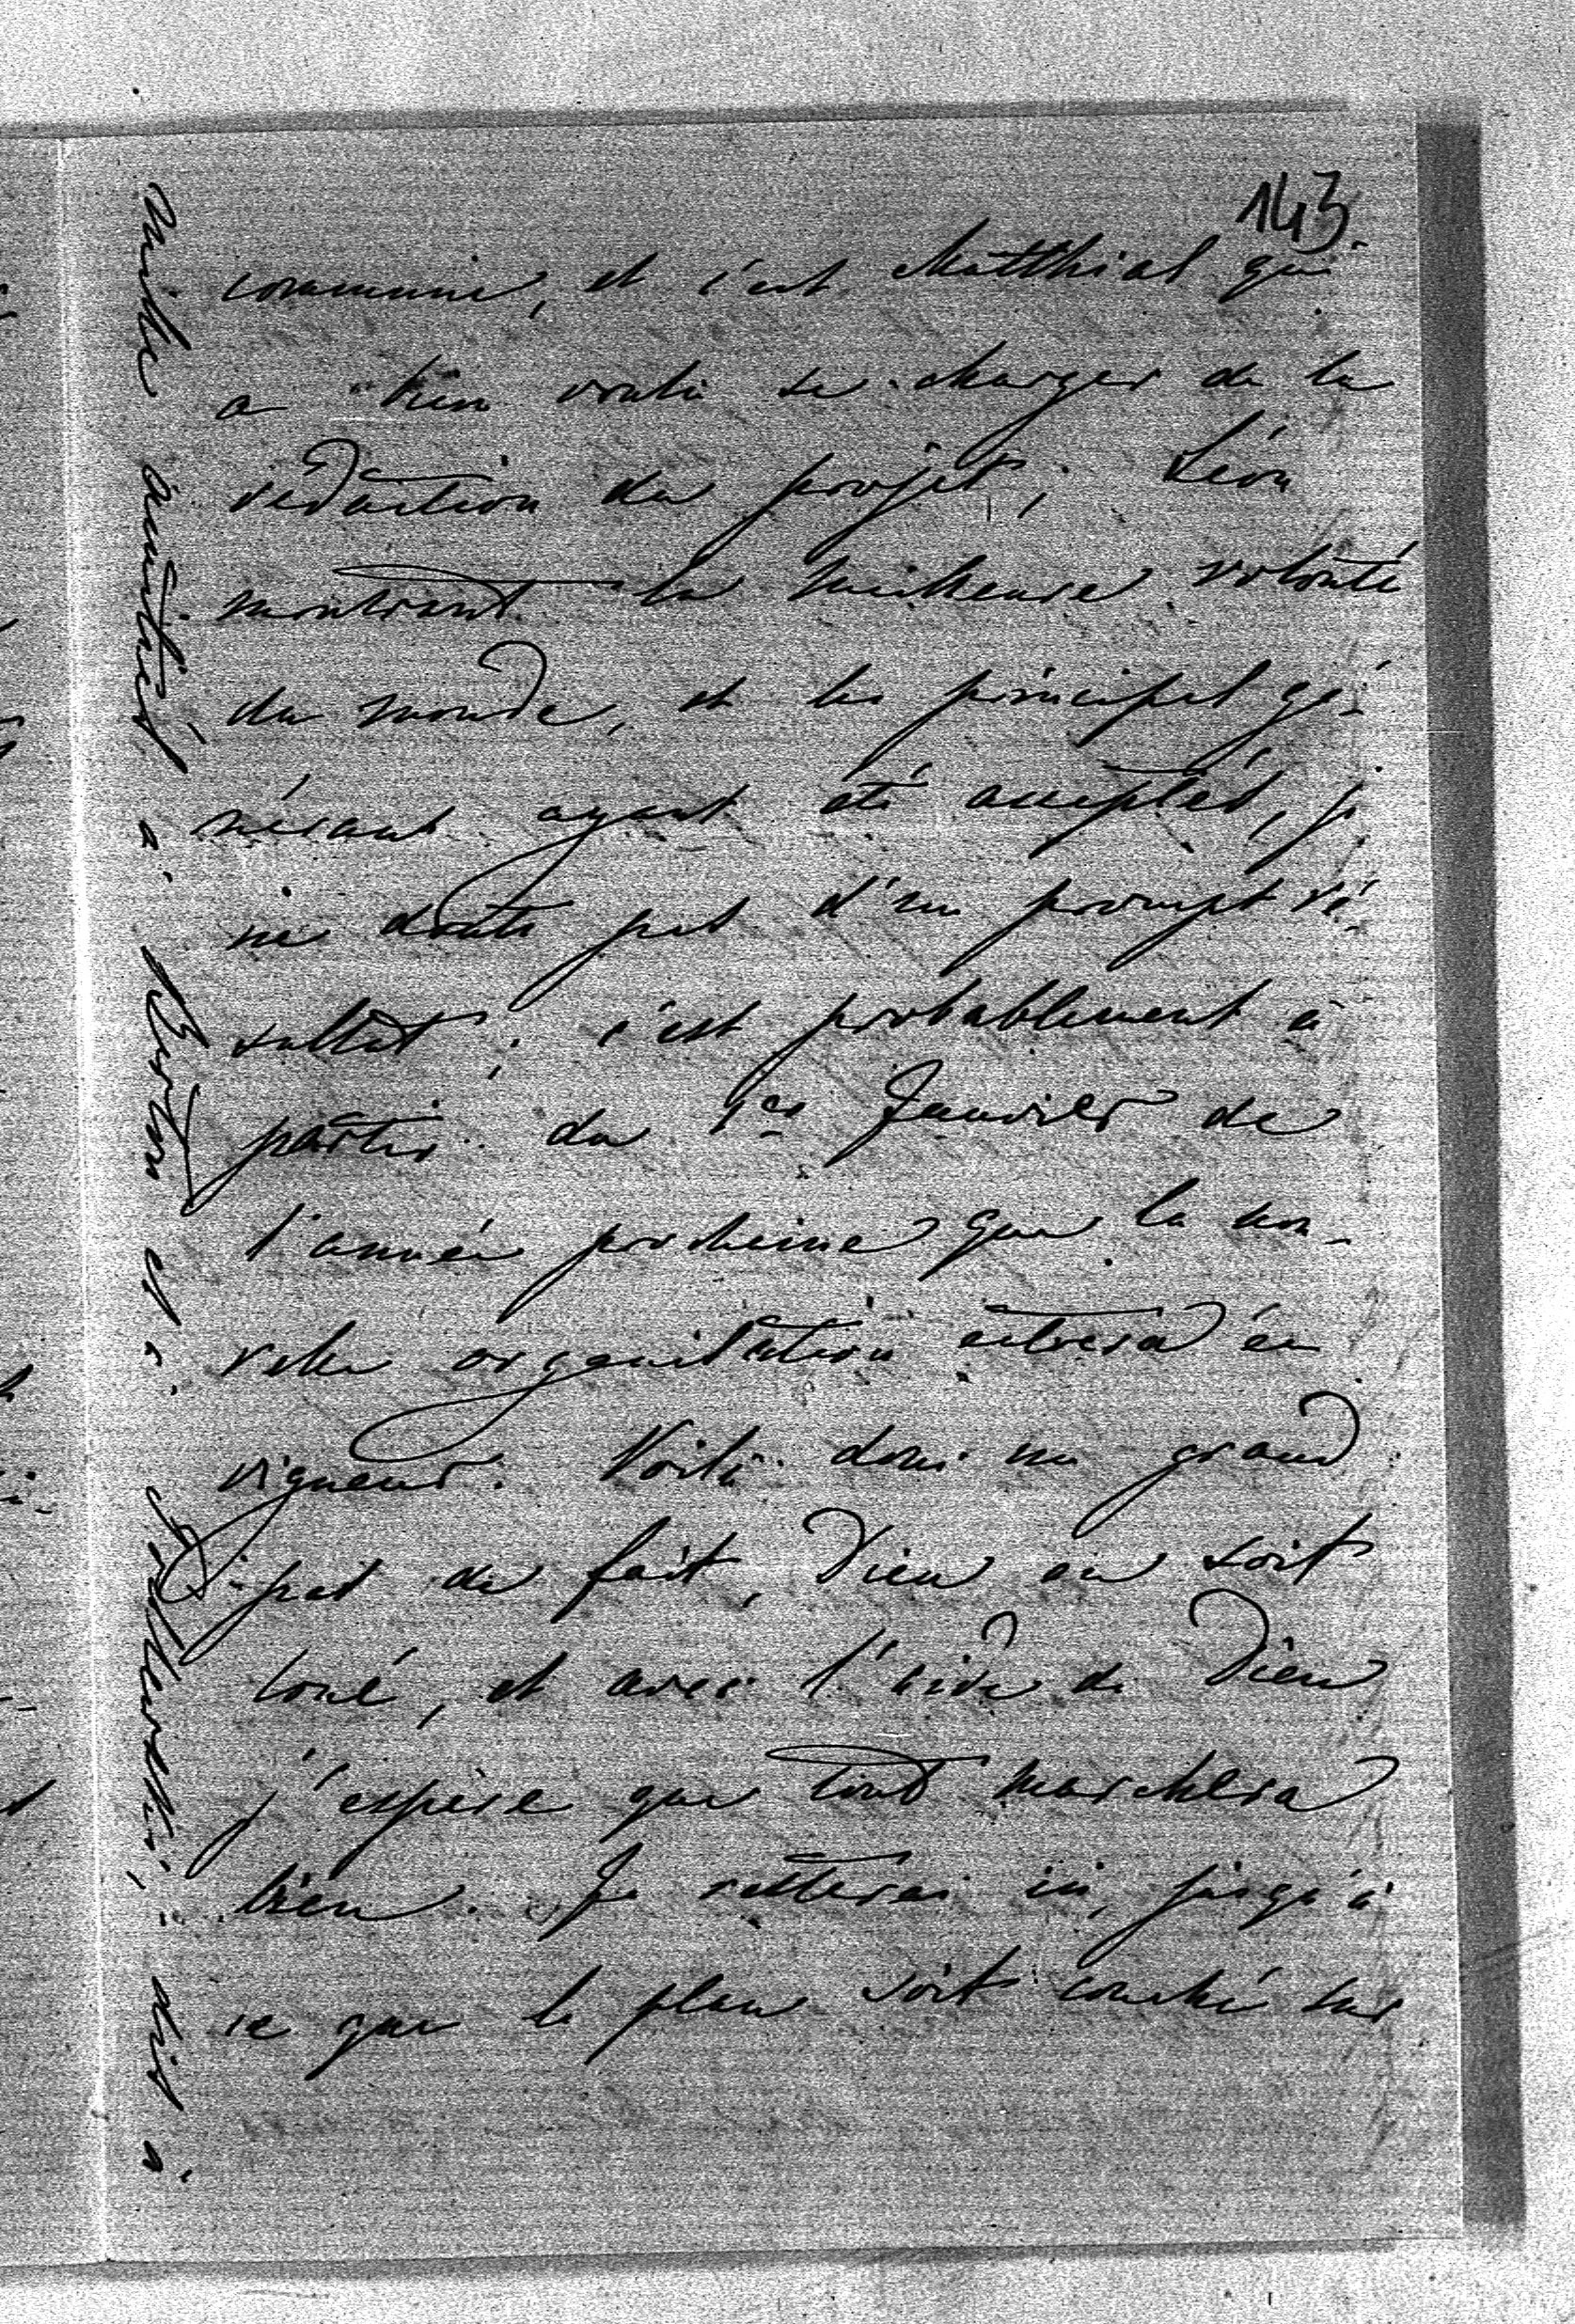 143.
commune, et c'est Matthias qui
a bien voulu se charger de la
rédaction du projet; Léon
montrant la meilleure volonté
du monde, et les principes gé-
néraux ayant été acceptés, je
ne doute pas d'un prompt ré-
sultat; c'est probablement à
partir du 1er Janvier de
l'année prochaine que la nou-
velle organisation entrera en
vigueur. Voilà donc un grand
pas de fait, Dieu en soit
loué, et avec l'aide de Dieu
j'espère que tout marchera
bien. Je resterai ici, jusqu'à
ce que le plan soit couché sur
Mille amitiés à et à